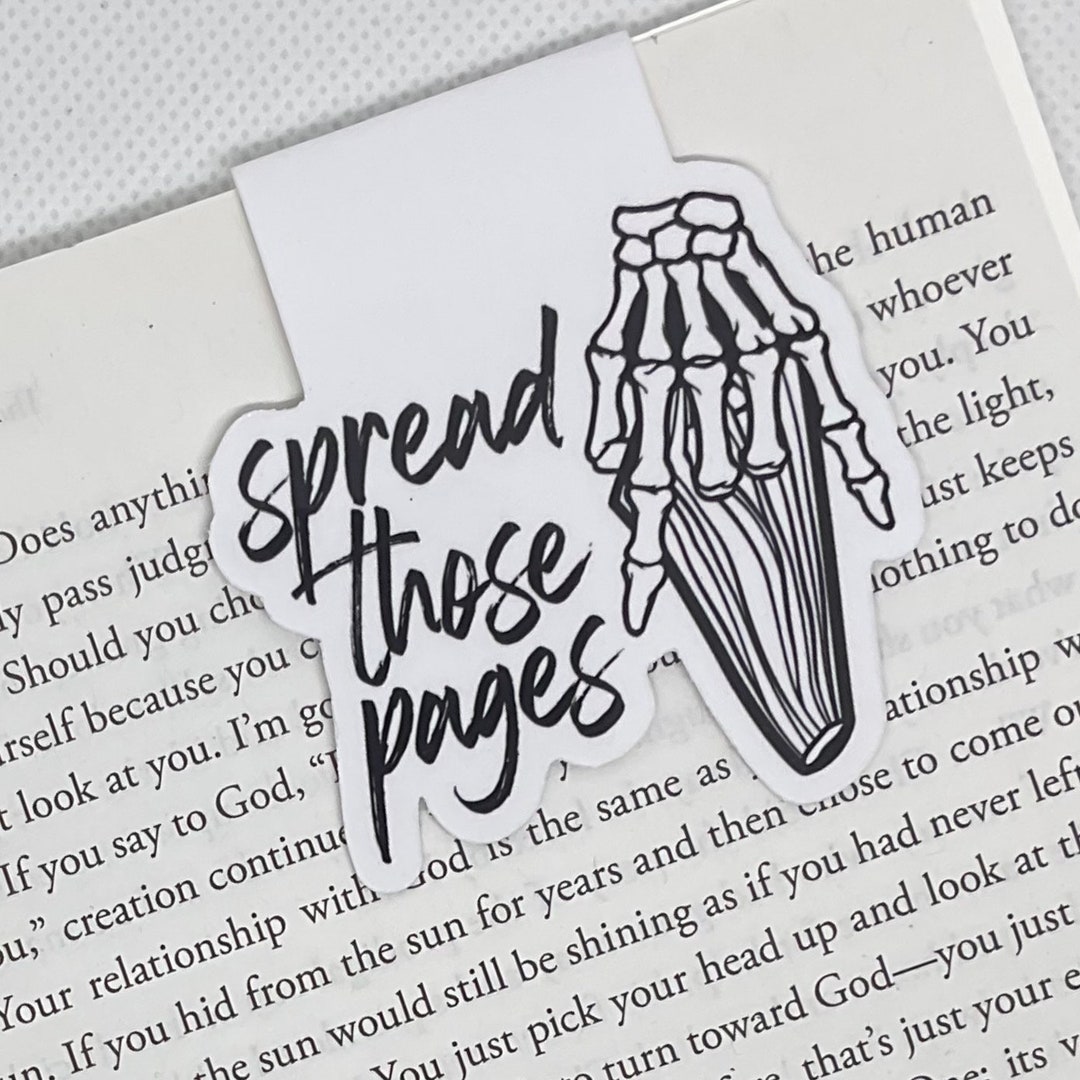 spread
those
pages
he human
whoever
you. You
the light,
Does anything
ust keeps
y pass judg
nothing to do
Should you cho
rself because you c
ationship w
t look at you. I'm go
chose to come ou
If you say to God, "I
the same as
u," creation continue
God is
and then
if you had never left
Your relationship with
n. If you hid from the sun for years
and look at th
the sun would still be shining as
You just pick your head up
turn toward God—you just
that's just your e
its v